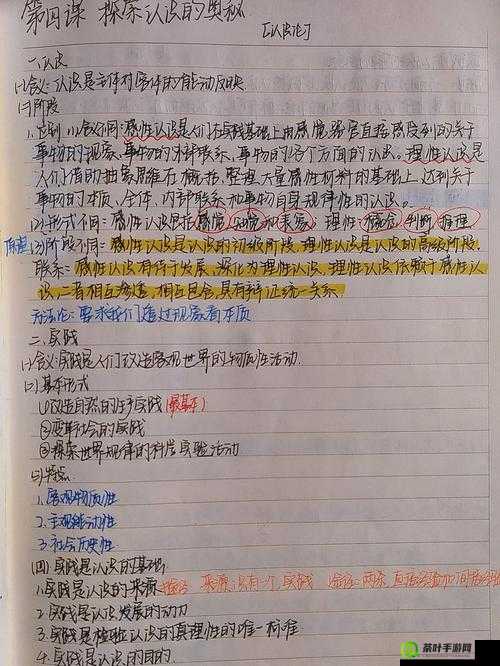 第四课 探索认识的奥秘
【认识论】
一、认识
(1)含义:认识是主体对客体的能动反映.
(2)阶段
1.区别 (1)含义不同:感性认识是人们在实践基础上由感觉器官直接感受到的关于
事物的现象、事物的外部联系、事物的各个方面的认识。理性认识是
人们借助抽象思维在概括、整理大量感性材料的基础上,达到关于
事物的本质、全体、内部联系和事物自身规律性的认识。
(2)形式不同:感性认识包括感觉、知觉和表象;理性:概念、判断、推理
(3)阶段不同:感性认识是认识的初级阶段,理性认识是认识的高级阶段.
联系:感性认识有待于发展、深化为理性认识,理性认识依赖于感性认
识,二者相互渗透,相互包含,具有辩证统一关系
方法论:要求我们透过现象看本质
二、实践
(一)含义:实践是人们改造客观世界的物质性活动.
(二)基本形式
①改造自然的生产实践(最基本)
②变革社会的实践
③探索世界规律的科学实验活动
(三)特点
1.客观物质性
2.主观能动性
3.社会历史性
(四)实践是认识的基础
1.实践是认识的来源 来源只有一个 实践 途径:两条 直接经验和间接经验
2.实践是认识发展的动力
3.实践是检验认识的真理性的唯一标准
4.实践是认识的目的
茶叶手游网